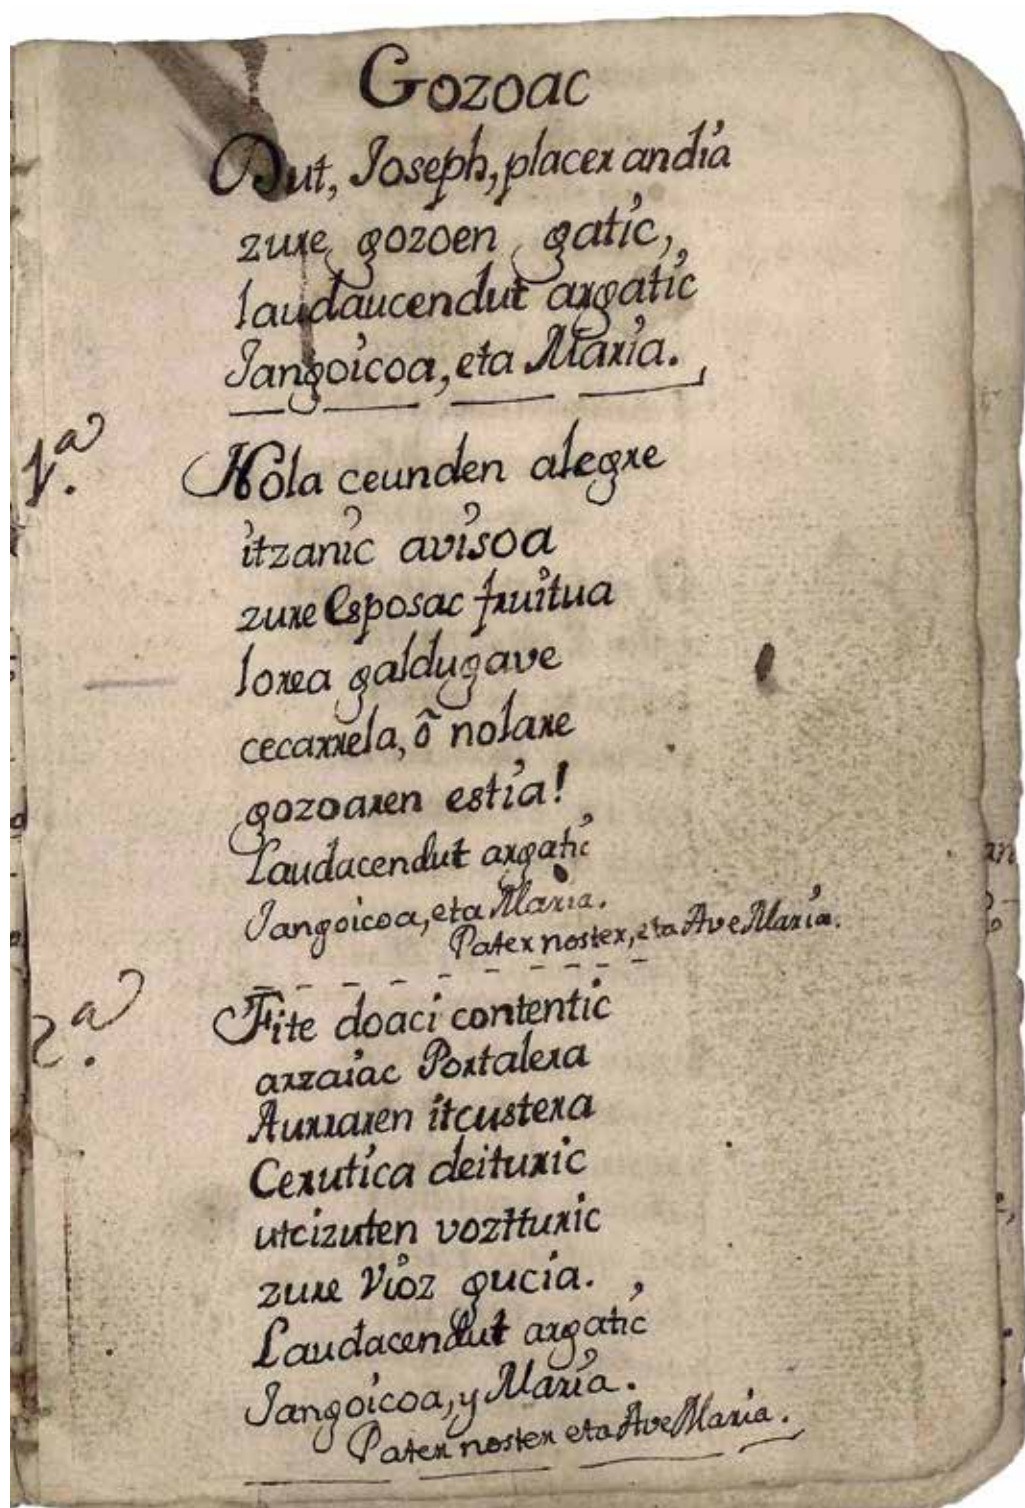 Gozoac
Dut, Joseph, placer andia
zure gozoen gatic,
laudaucendut argatic
Jangoicoa, eta Maria.
1.a
Nola ceunden alegre
itzanic avisoa
zure Esposac fruitua
lorea galdugave
cecarrela, õ nolare
gozoaren estia!
Laudacendut argatic
Jangoicoa, eta Maria.
Pater noster, eta Ave Maria.
2.a
Fite doaci contentic
arzaiac Portalera
Aurraren itcustera
Cerutica deituric
utcizuten vozturic
zure Vioz gucia.
Laudacendut argatic
Jangoicoa, y Maria.
Pater noster eta Ave Maria.